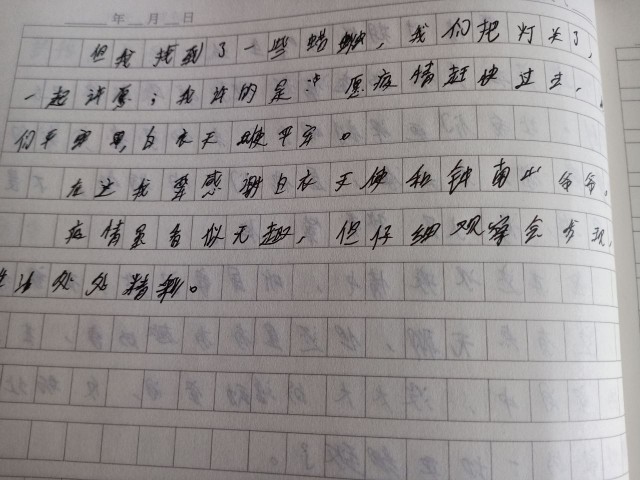 年 月 日
但我找到了一些蜡烛，我们把灯关了，
一起许愿；我许的是：愿疫情赶快过去，
们平安，白衣天使平安。
在这我要感谢白衣天使和钟南山爷爷。
疫情虽看似无趣，但仔细观察会发现，
生活处处精彩。